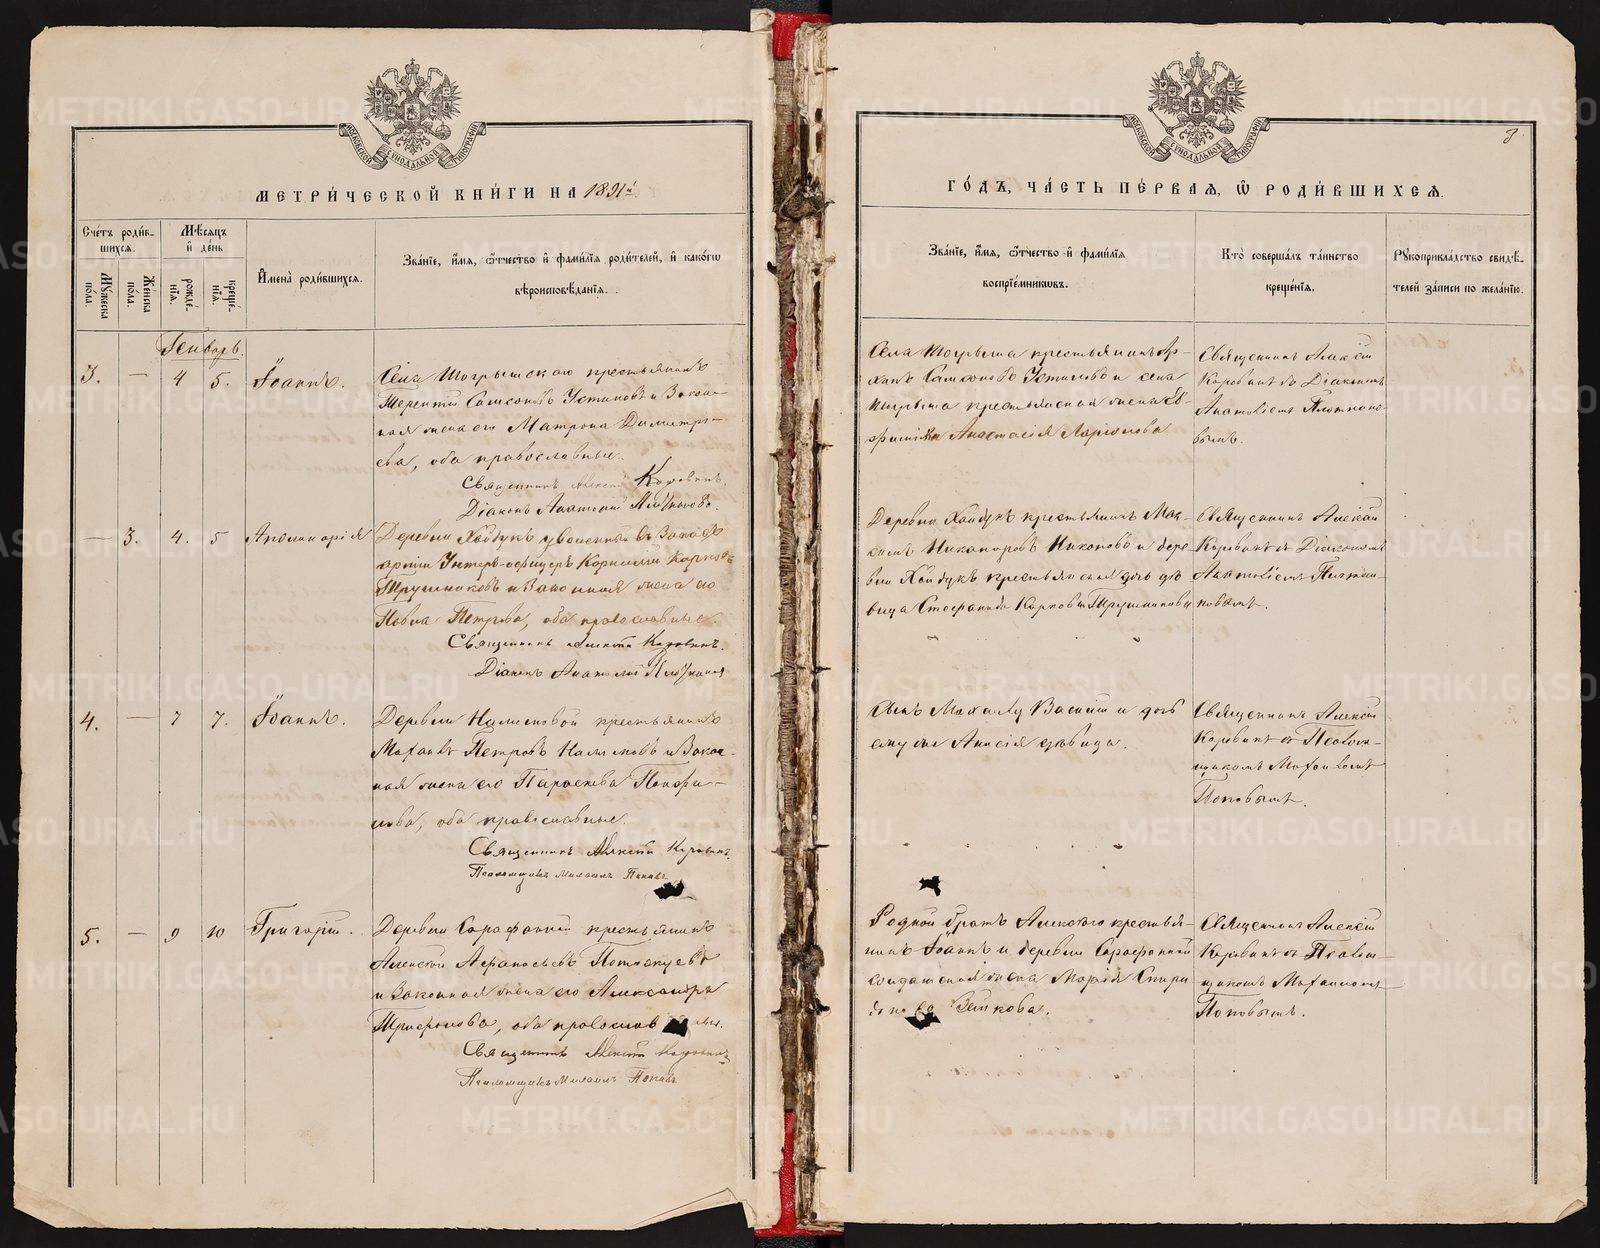 МОСКОВСКОЙ СѴНОДАЛЬНОЙ ТИПОГРАФІИ
МЕТРИ́ЧЕСКОЙ КНИ́ГИ НА 1891й
Сче́тъ роди́в-
шихсѧ.
Мѣсѧцъ
и҆ де́нь
Мꙋ́жеска
по́ла.
Же́нска
по́ла.
рожде́-
нїѧ.
креще́-
нїѧ.
И҆мена̀ роди́вшихсѧ.
Зва́нїе, и҆́мѧ, ѻ҆́тчество и҆ фами́лїѧ роди́телей, и҆ како́гѡ
вѣроисповѣ́данїѧ.
Генварь.
3. — 4 5. Іоаннъ.
Села Шогрышскаго крестьянинъ
Терентій Самсоновъ Устиновъ и закон-
ная жена его Матрона Димитрі-
ева, оба православные.
Священникъ Алексій Коровинъ.
Діаконъ Анатолій
— 3. 4. 5 Аполинарія
Деревни Хайдукъ уволенный въ запасъ
арміи Унтеръ-офицеръ Корнилій Карповъ
Трушниковъ и законная жена его
Павла Петрова, оба православные.
Священникъ Алексій Коровинъ.
Діаконъ Анатолій
4. — 7 7. Іоаннъ.
Деревни Налимовой крестьянинъ
Петровъ Налимовъ и закон-
ная жена его Параскева Панфи-
лова, оба православные.
Священникъ Алексій Коровинъ.
Псаломщикъ Михаилъ Поповъ.
5. — 9 10 Григорій.
Деревни Сарафанной крестьянинъ
Алексій Афанасьевъ Потоскуевъ
и законная жена его Александра
Трифонова, оба православные.
Священникъ Алексій Коровинъ
Псаломщикъ Михаилъ Поповъ
МОСКОВСКОЙ СѴНОДАЛЬНОЙ ТИПОГРАФІИ
3
ГО́ДЪ, ЧА́СТЬ ПЕ́РВАѦ, Ѡ҆ РОДИ́ВШИХСѦ.
Зва́нїе, и҆́мѧ, ѻ҆́тчество и҆ фами́лїѧ
воспрїе́мникѡвъ.
Кто̀ соверша́лъ та́инство
креще́нїѧ.
Рꙋкоприкла́дство свидѣ́-
телей за́писи по жела́нїю.
Села Шогрыша крестьянинъ Ар-
хипъ Самсоновъ Устиновъ и села
Шогрыша крестьянская жена
Анастасія Ларіонова
Священникъ Алексій
Коровинъ съ Діакономъ
Анатоліемъ Плотнико-
вымъ.
Деревни Хайдукъ крестьянинъ Мак-
симъ Никаноровъ Никоновъ и дере-
вни Хайдукъ крестьянская дочь дѣ-
вица Стефанида Карпова Трушникова
Священникъ Алексій
Коровинъ съ Діакономъ
Анатоліемъ Плотни-
ковымъ.
Сынъ Василій и дочь
ему же Анисія дѣвица.
Священникъ Алексій
Коровинъ съ Псалом-
щикомъ Михаиломъ
Поповымъ.
Родной братъ Алексѣя крестья-
нинъ Іоаннъ и деревни Сарафанной
солдатская жена Марія Спири-
донова Зенкова.
Священникъ Алексій
Коровинъ съ Псалом-
щикомъ Михаиломъ
Поповымъ.
METRIKI.GASO-URAL.RU